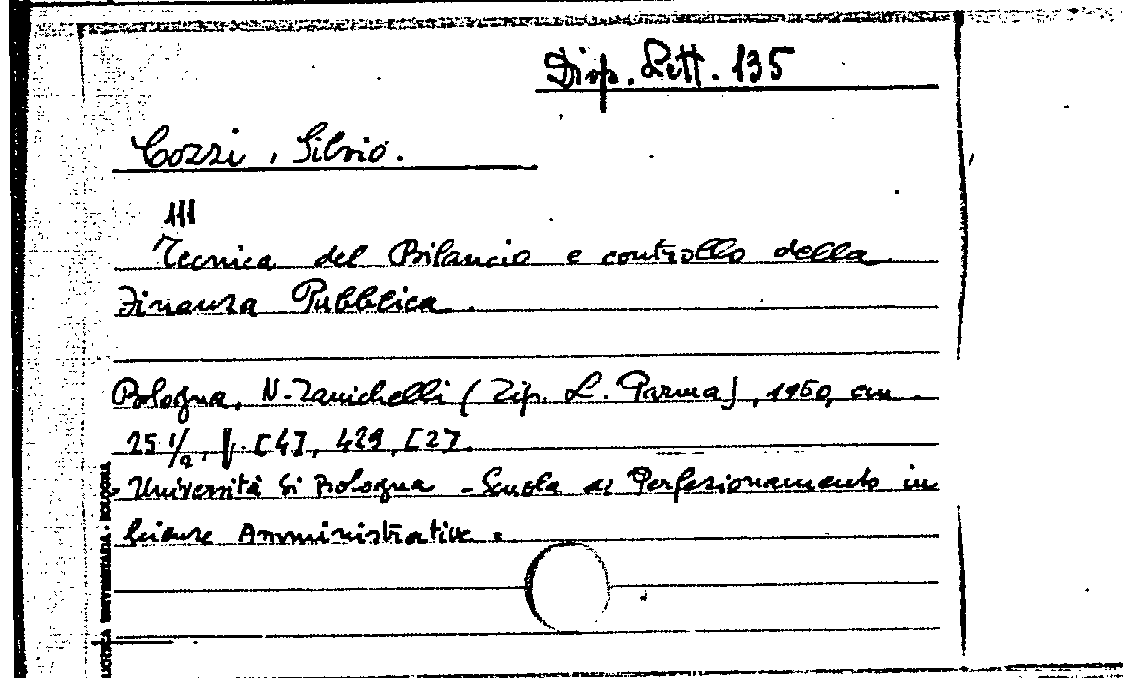 Disp. Lett. 135
Cozzi, Silvio.
III
Tecnica del Bilancio e controllo della
Finanza Pubblica.
Bologna, N. Zanichelli (Tip. L. Parma), 1960, cm.
25 1/2, p. [4], 429, [2].
- Università di Bologna - Scuola di Perfezionamento in
Scienze Amministrative.
BIBLIOTECA UNIVERSITARIA - BOLOGNA